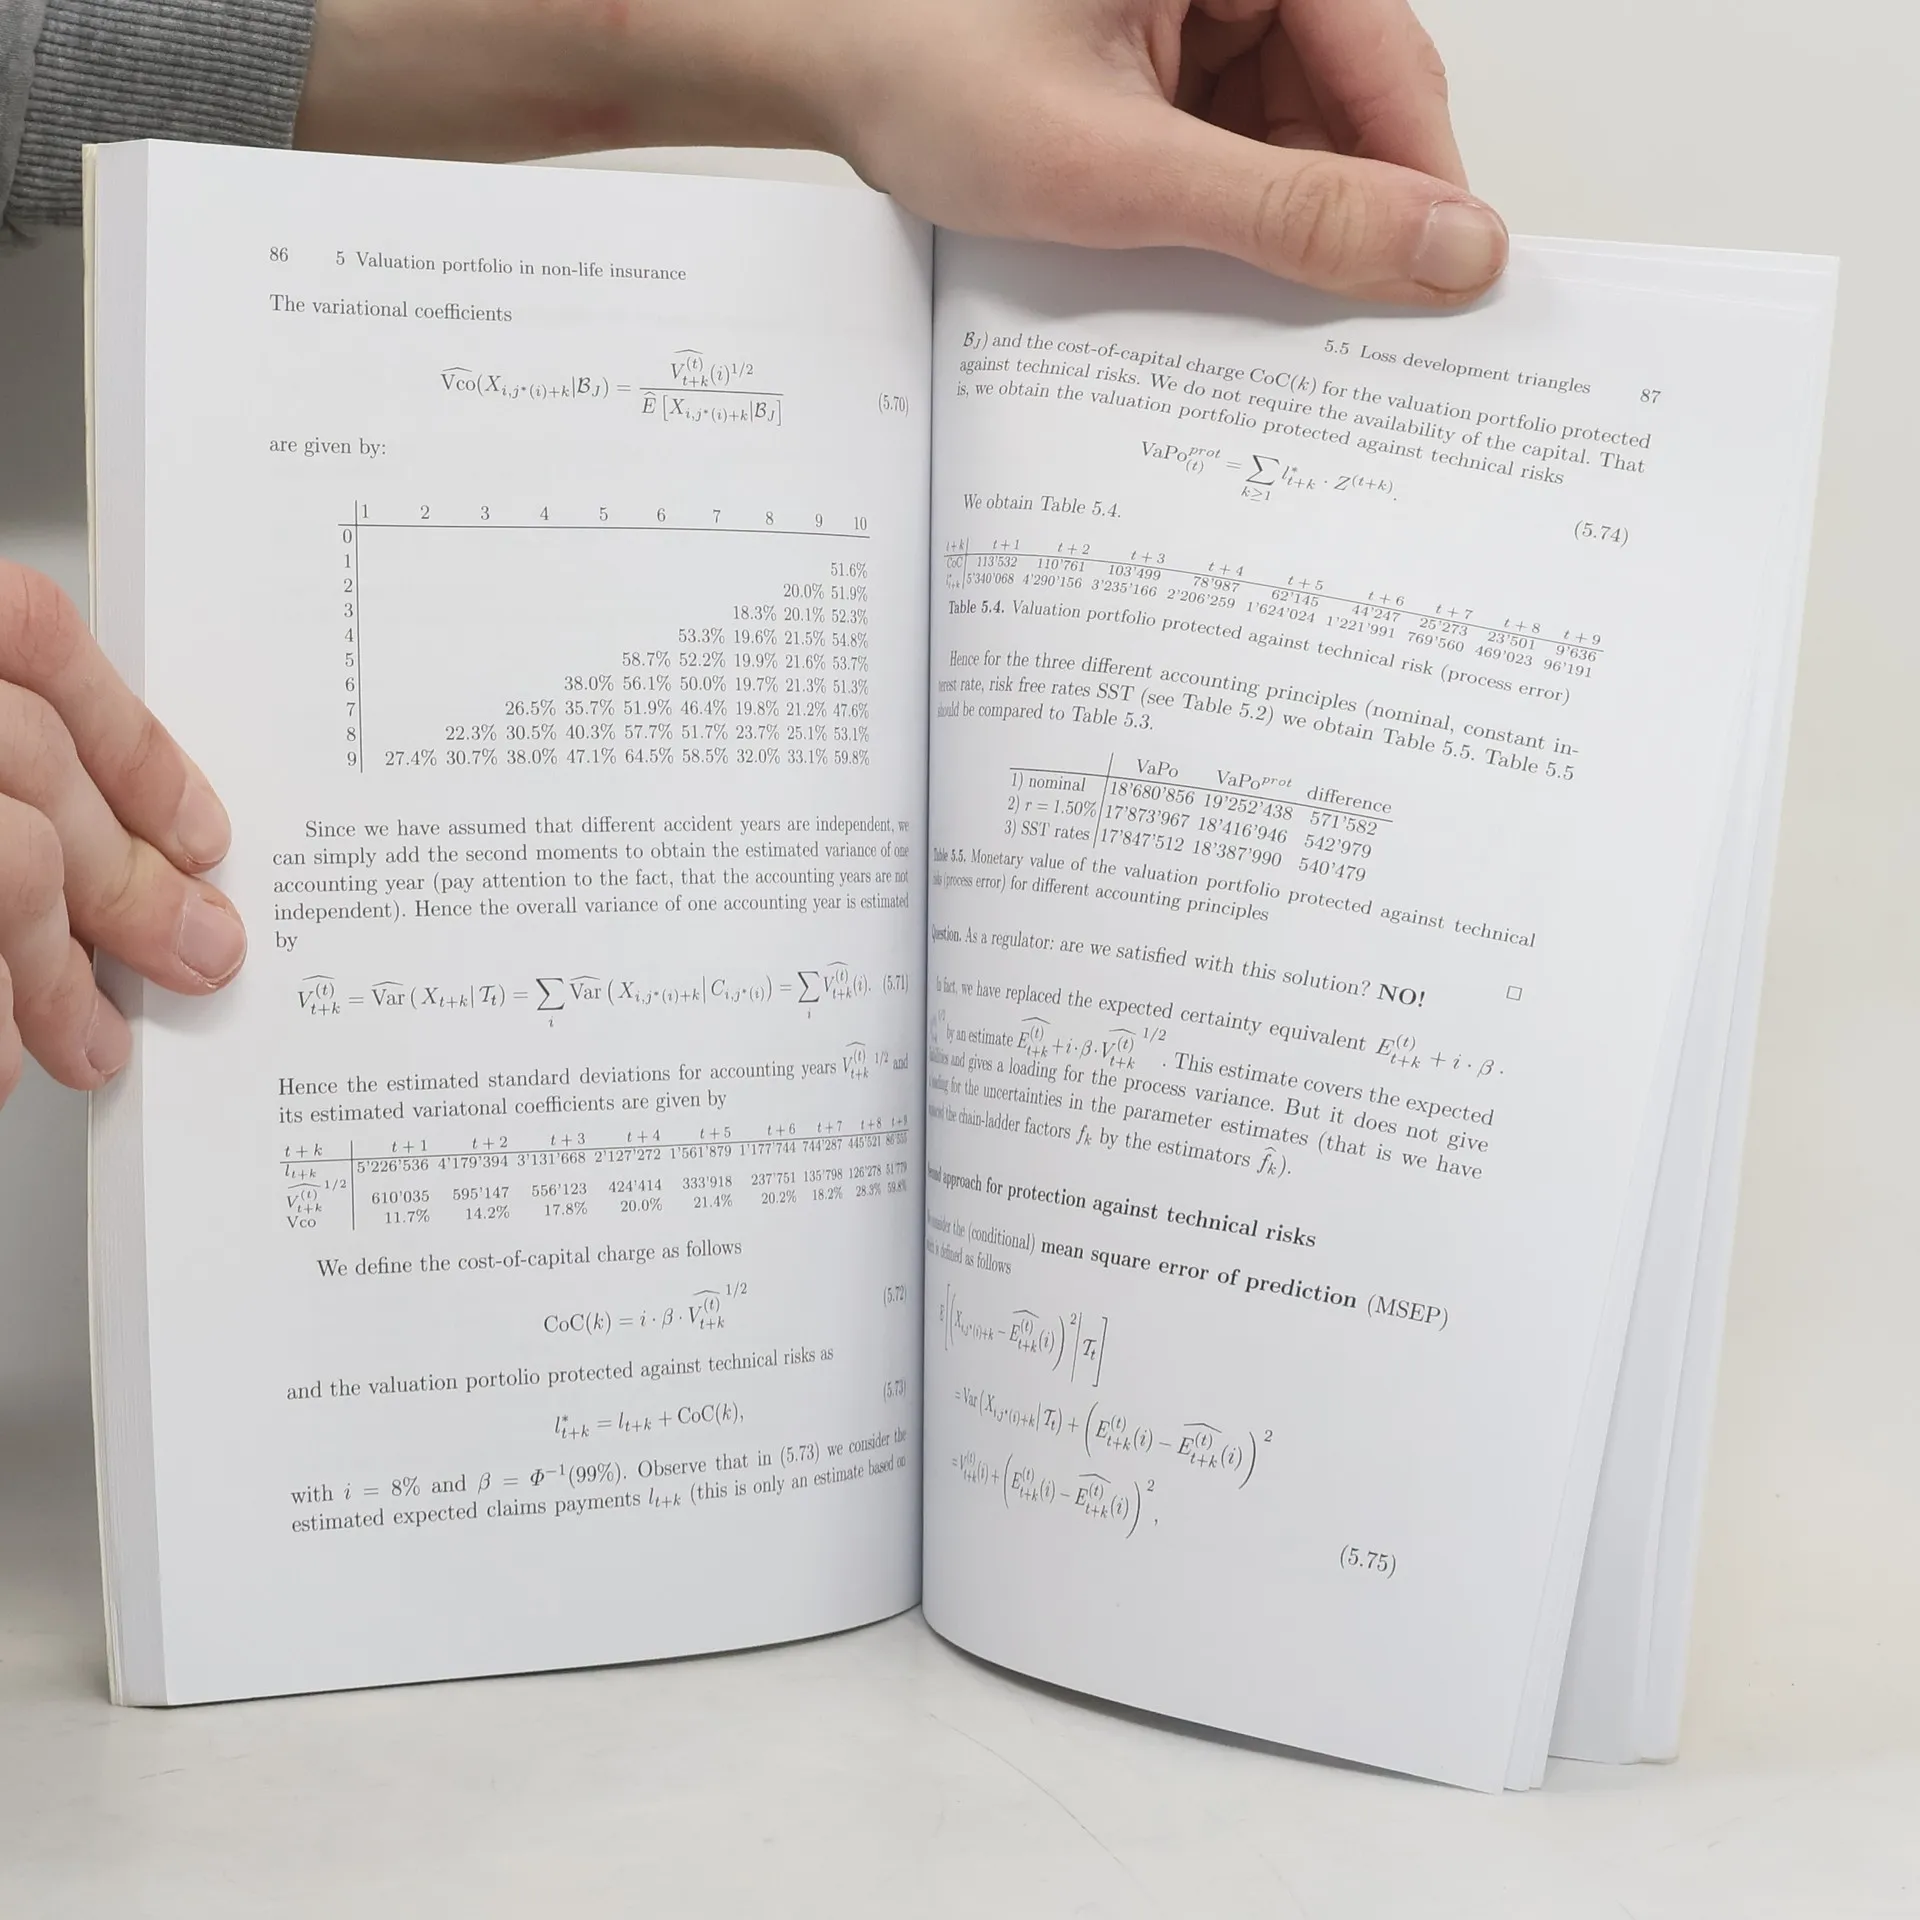 86 5 Valuation portfolio in non-life insurance
The variational coefficients
V̂co(X_{i,j*(i)+k}|B_J) = \widehat{V_{t+k}^{(t)}}(i)^{1/2} / Ê [X_{i,j*(i)+k}|B_J] (5.70)
are given by:
1 2 3 4 5 6 7 8 9 10
0
1 51.6%
2 20.0% 51.9%
3 18.3% 20.1% 52.3%
4 53.3% 19.6% 21.5% 54.8%
5 58.7% 52.2% 19.9% 21.6% 53.7%
6 38.0% 56.1% 50.0% 19.7% 21.3% 51.3%
7 26.5% 35.7% 51.9% 46.4% 19.8% 21.2% 47.6%
8 22.3% 30.5% 40.3% 57.7% 51.7% 23.7% 25.1% 53.1%
9 27.4% 30.7% 38.0% 47.1% 64.5% 58.5% 32.0% 33.1% 59.8%
Since we have assumed that different accident years are independent, we
can simply add the second moments to obtain the estimated variance of one
accounting year (pay attention to the fact, that the accounting years are not
independent). Hence the overall variance of one accounting year is estimated
by
\widehat{V_{t+k}^{(t)}} = \widehat{Var} (X_{t+k}|T_t) = ∑_i \widehat{Var} (X_{i,j*(i)+k}|C_{i,j*(i)}) = ∑_i \widehat{V_{t+k}^{(t)}}(i). (5.71)
Hence the estimated standard deviations for accounting years \widehat{V_{t+k}^{(t)}}^{1/2} and
its estimated variatonal coefficients are given by
t+k t+1 t+2 t+3 t+4 t+5 t+6 t+7 t+8 t+9
l_{t+k} 5'226'536 4'179'394 3'131'668 2'127'272 1'561'879 1'177'744 744'287 445'521 86'555
\widehat{V_{t+k}^{(t)}}^{1/2} 610'035 595'147 556'123 424'414 333'918 237'751 135'798 126'278 51'779
Vco 11.7% 14.2% 17.8% 20.0% 21.4% 20.2% 18.2% 28.3% 59.8%
We define the cost-of-capital charge as follows
CoC(k) = i · β · \widehat{V_{t+k}^{(t)}}^{1/2} (5.72)
and the valuation portolio protected against technical risks as
l*_{t+k} = l_{t+k} + CoC(k), (5.73)
with i = 8% and β = Φ⁻¹(99%). Observe that in (5.73) we consider the
estimated expected claims payments l_{t+k} (this is only an estimate based on
5.5 Loss development triangles 87
B_J) and the cost-of-capital charge CoC(k) for the valuation portfolio protected
against technical risks. We do not require the availability of the capital. That
is, we obtain the valuation portfolio protected against technical risks
VaPo_{(t)}^{prot} = ∑_{k≥1} l*_{t+k} · Z^{(t+k)}. (5.74)
We obtain Table 5.4.
t+k t+1 t+2 t+3 t+4 t+5 t+6 t+7 t+8 t+9
CoC 113'532 110'761 103'499 78'987 62'145 44'247 25'273 23'501 9'636
l*_{t+k} 5'340'068 4'290'156 3'235'166 2'206'259 1'624'024 1'221'991 769'560 469'023 96'191
Table 5.4. Valuation portfolio protected against technical risk (process error)
Hence for the three different accounting principles (nominal, constant in-
terest rate, risk free rates SST (see Table 5.2) we obtain Table 5.5. Table 5.5
should be compared to Table 5.3.
VaPo VaPo^{prot} difference
1) nominal 18'680'856 19'252'438 571'582
2) r = 1.50% 17'873'967 18'416'946 542'979
3) SST rates 17'847'512 18'387'990 540'479
Table 5.5. Monetary value of the valuation portfolio protected against technical
risks (process error) for different accounting principles
Question. As a regulator: are we satisfied with this solution? NO! □
In fact, we have replaced the expected certainty equivalent E_{t+k}^{(t)} + i · β ·
by an estimate \widehat{E_{t+k}^{(t)}} + i · β · \widehat{V_{t+k}^{(t)}}^{1/2}. This estimate covers the expected
liabilities and gives a loading for the process variance. But it does not give
a loading for the uncertainties in the parameter estimates (that is we have
replaced the chain-ladder factors f_k by the estimators \widehat{f_k}).
Second approach for protection against technical risks
We consider the (conditional) mean square error of prediction (MSEP)
which is defined as follows
E[(X_{i,j*(i)+k} − \widehat{E_{t+k}^{(t)}}(i))² | T_t]
= Var(X_{i,j*(i)+k}|T_t) + (E_{t+k}^{(t)}(i) − \widehat{E_{t+k}^{(t)}}(i))²
= V_{t+k}^{(t)}(i) + (E_{t+k}^{(t)}(i) − \widehat{E_{t+k}^{(t)}}(i))²,
(5.75)